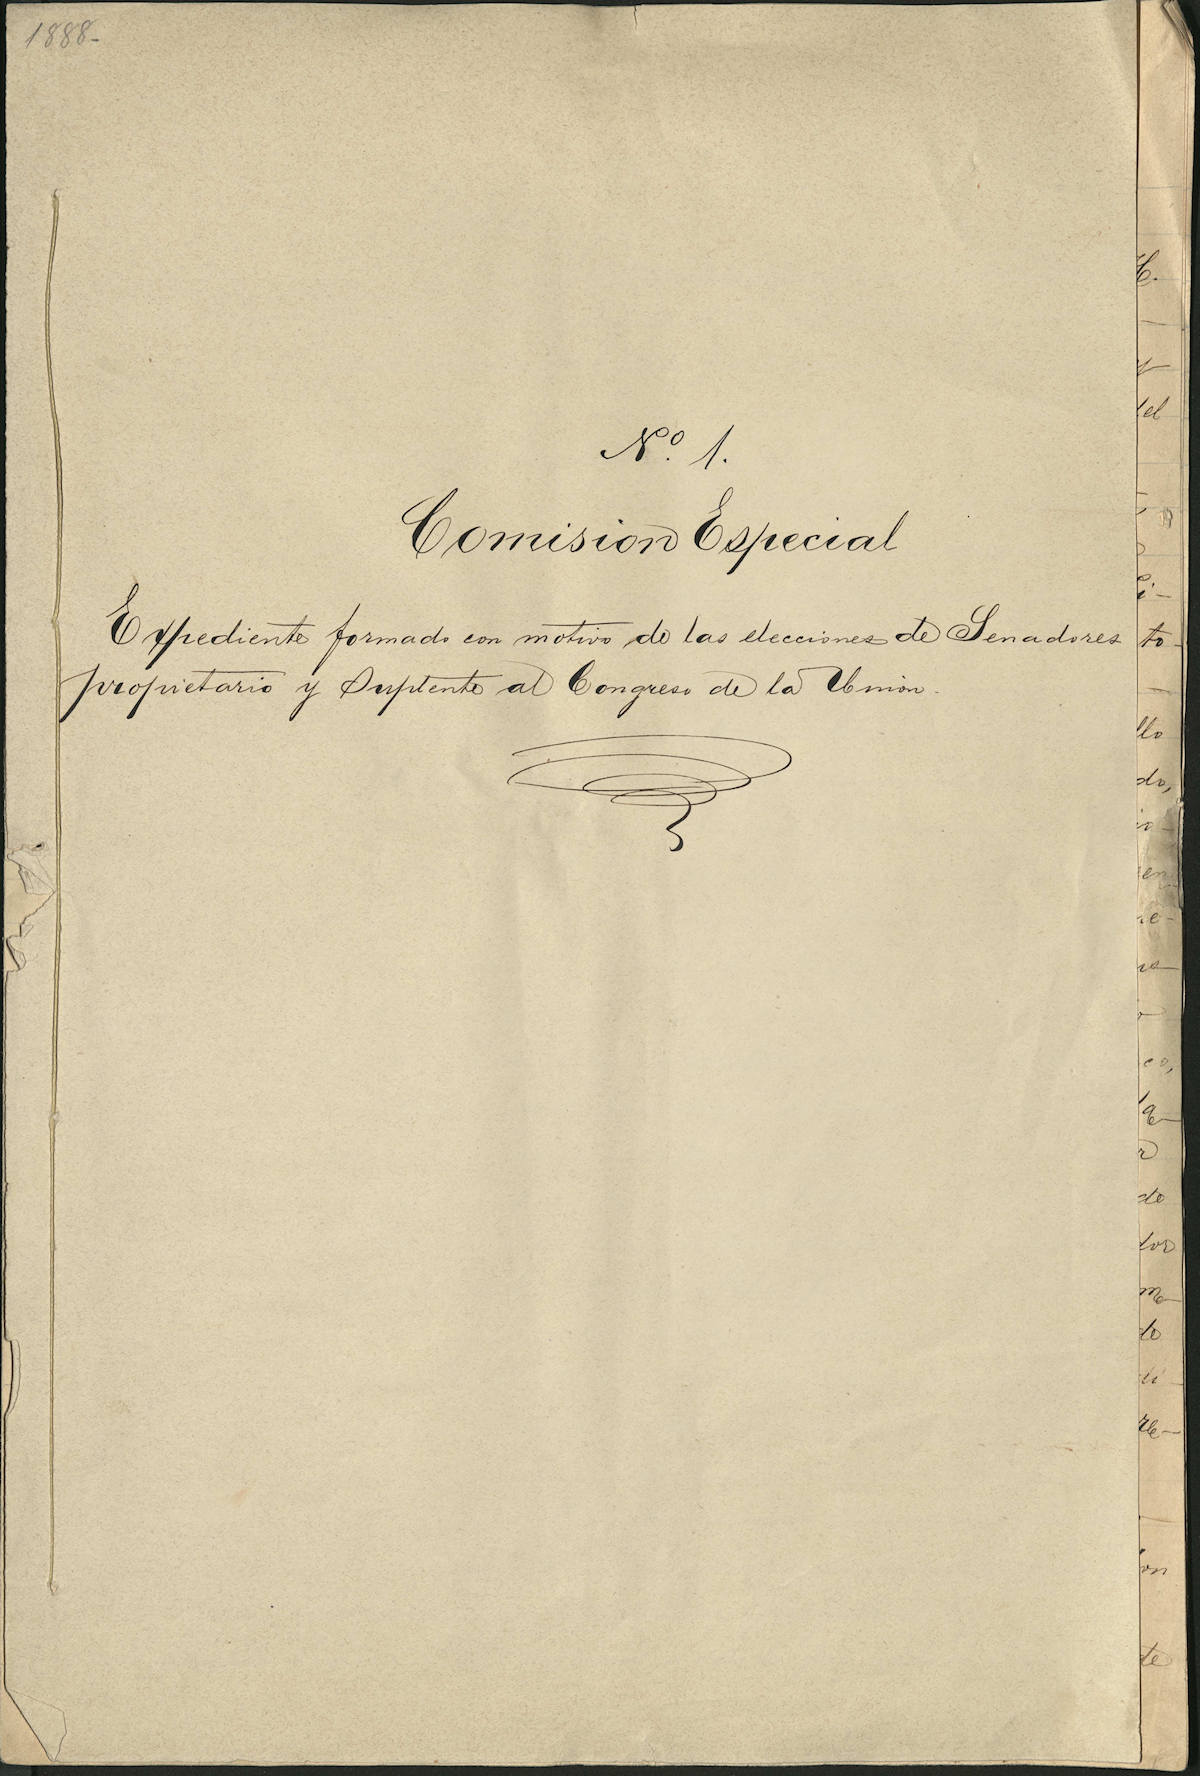 1888-
Nº. 1.
Comision Especial
Expediente formado con motivo de las elecciones de Senadores
propietario y Suplente al Congreso de la Union.
del
to
llo
do,
co,
de
dor
me
do
re-
de